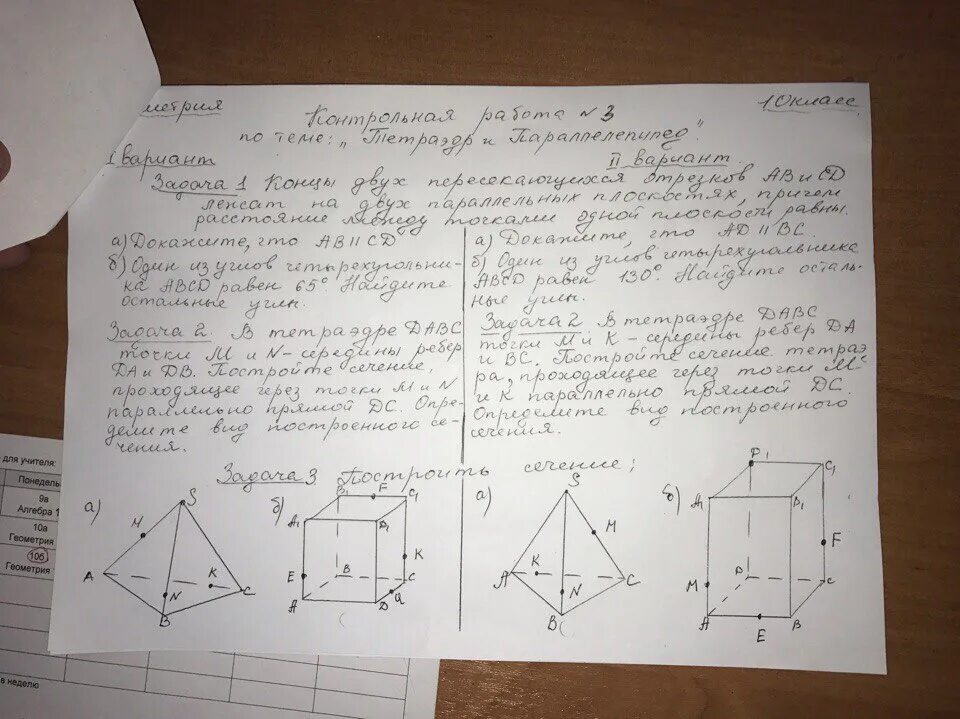 метрия
10 класс
Контрольная работа №3
по теме: "Тетраэдр и Параллелепипед"
I вариант
II вариант
Задача 1 Концы двух пересекающихся отрезков AB и CD
лежат на двух параллельных плоскостях, причем
расстояние между точками одной плоскости равны.
а) Докажите, что AB || CD
б) Один из углов четырехугольни-
ка ABCD равен 65°. Найдите
остальные углы.
Задача 2. В тетраэдре DABC
точки M и N - середины ребер
DA и DB. Постройте сечение,
проходящее через точки M и N
параллельно прямой DC. Опре-
делите вид построенного се-
чения.
а) Докажите, что AD || BC.
б) Один из углов четырехугольника
ABCD равен 130°. Найдите осталь-
ные углы.
Задача 2 В тетраэдре DABC
точки M и K - середины ребер DA
и BC. Постройте сечение тетраэд-
ра, проходящее через точки M
и K параллельно прямой DC.
Определите вид построенного
сечения.
Задача 3 Построить сечение:
а)
S
M
A
K
C
N
B
б)
B₁
F
C₁
A₁
D₁
K
E
B
C
A
D
Q
а)
S
M
A
K
C
N
B
б)
D₁
C₁
A₁
B₁
F
M
D
C
A
E
B
для учителя:
Понедель
9а
Алгебра 1
10а
Геометрия
10б
Геометрия
в неделю